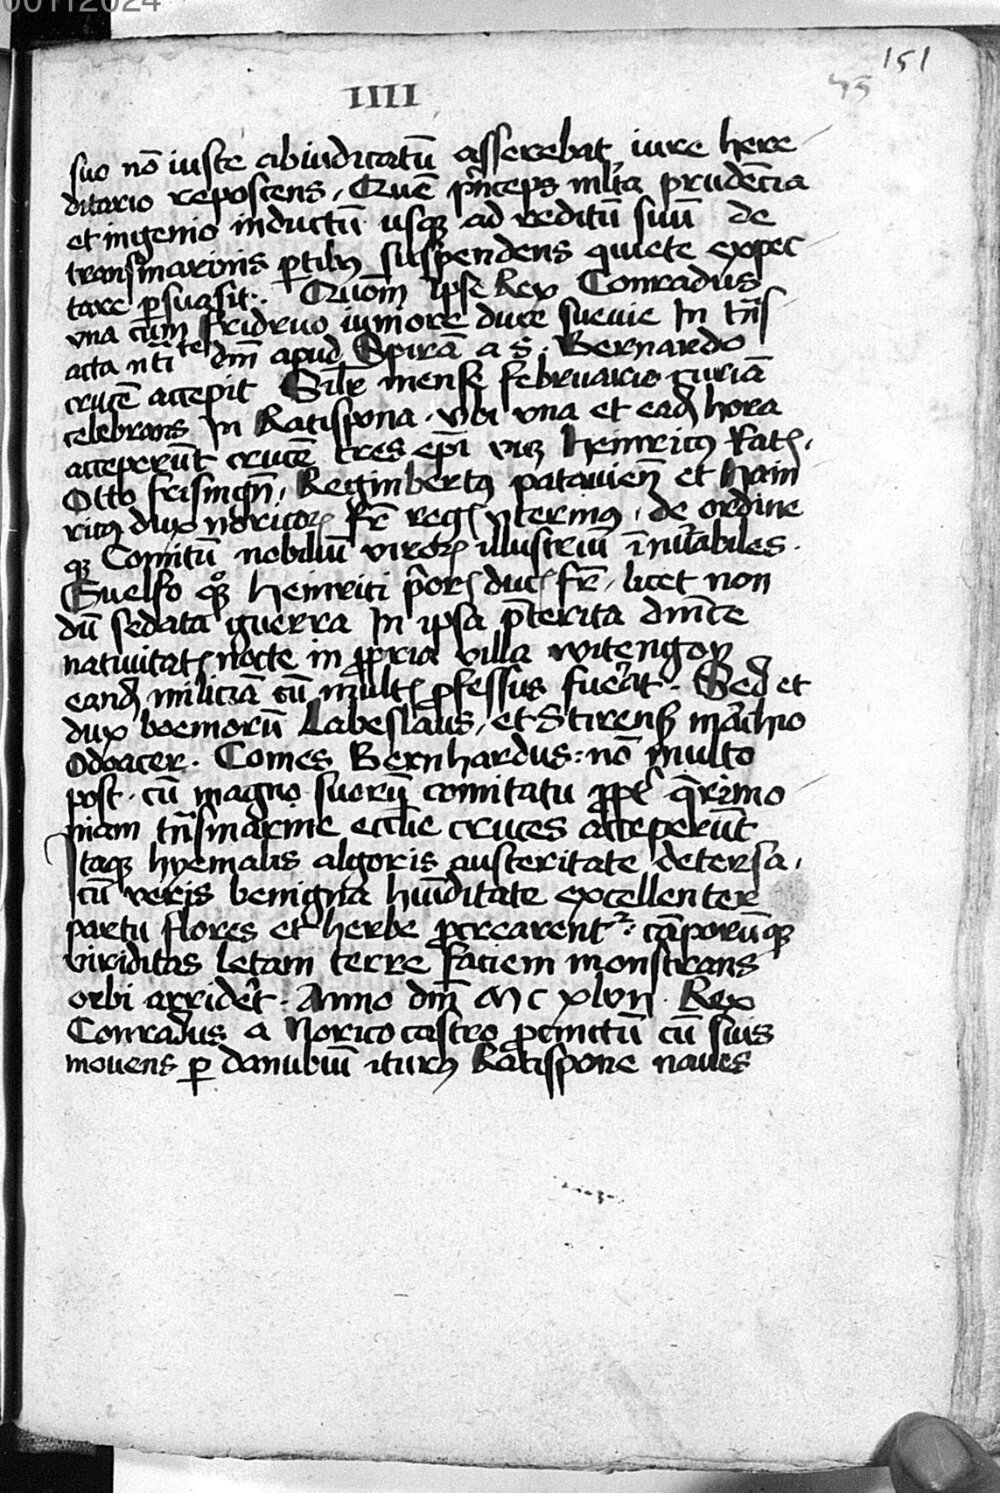 00112024
151
45
IIII
suo nō iuste abiudicatū asserebat iure here
ditario reposcens, Quē pⁱnceps mlta prudēcia
et ingenio inductū usqꝫ ad reditū suū de
transmarinis ꝑtibꝰ suspendens quiete expec
tare ꝑsuasit. Quom̄ ipse Rex Conradus
vna cum Fridrico iuniore duce sueuie In
acta dm̄ apud Spirā a S. Bernardo
crucē accepit Silr̄ mense februario curiā
celebrans In Ratispona. vbi vna et eadē hora
acceperūt crucē tres ep̄i vicꝫ Heinricꝰ Ratꝭ.
Otto frisingn̄, Reginbertꝰ patauien̄ et Hain
ricꝰ dux noricoꝝ fr̄ regꝭ vterinꝰ, de ordine
qꝫ Comitū nobiliū viroꝝ illustriū īnūabiles.
Guelfo qͦqꝫ Heinrici p̄orꝭ ducꝭ fr̄, licet non
dū sedata guerra In ipsa p̄terita dn̄ice
natiuitatꝭ nocte in ꝓpria villa witengow
eandē miliciā cū multꝭ ꝓfessus fuerat. Sed et
dux boemorū Labeslaus, et Stirensꝭ mᵃchio
Odoacer. Comes Bernhardus: nō multo
post. cū magno suorū comitatu ꝓptꝭ qᵉrimo
niam tn̄smarine eccl̄ie cruces acceperūt
Itaqꝫ hyemalis algoris austeritate detersa,
cū veris benigna hūiditate excellenter
partu flores et herbe ꝓcrearentᷣ: cāporūqꝫ
viriditas letam terre faciem monstrans
orbi arridēt. Anno dm̄ M C xlvii. Rex
Conradus a Norico castro ꝓcinctū cū suis
mouens ꝑ danubiū iturꝰ Ratispone naues